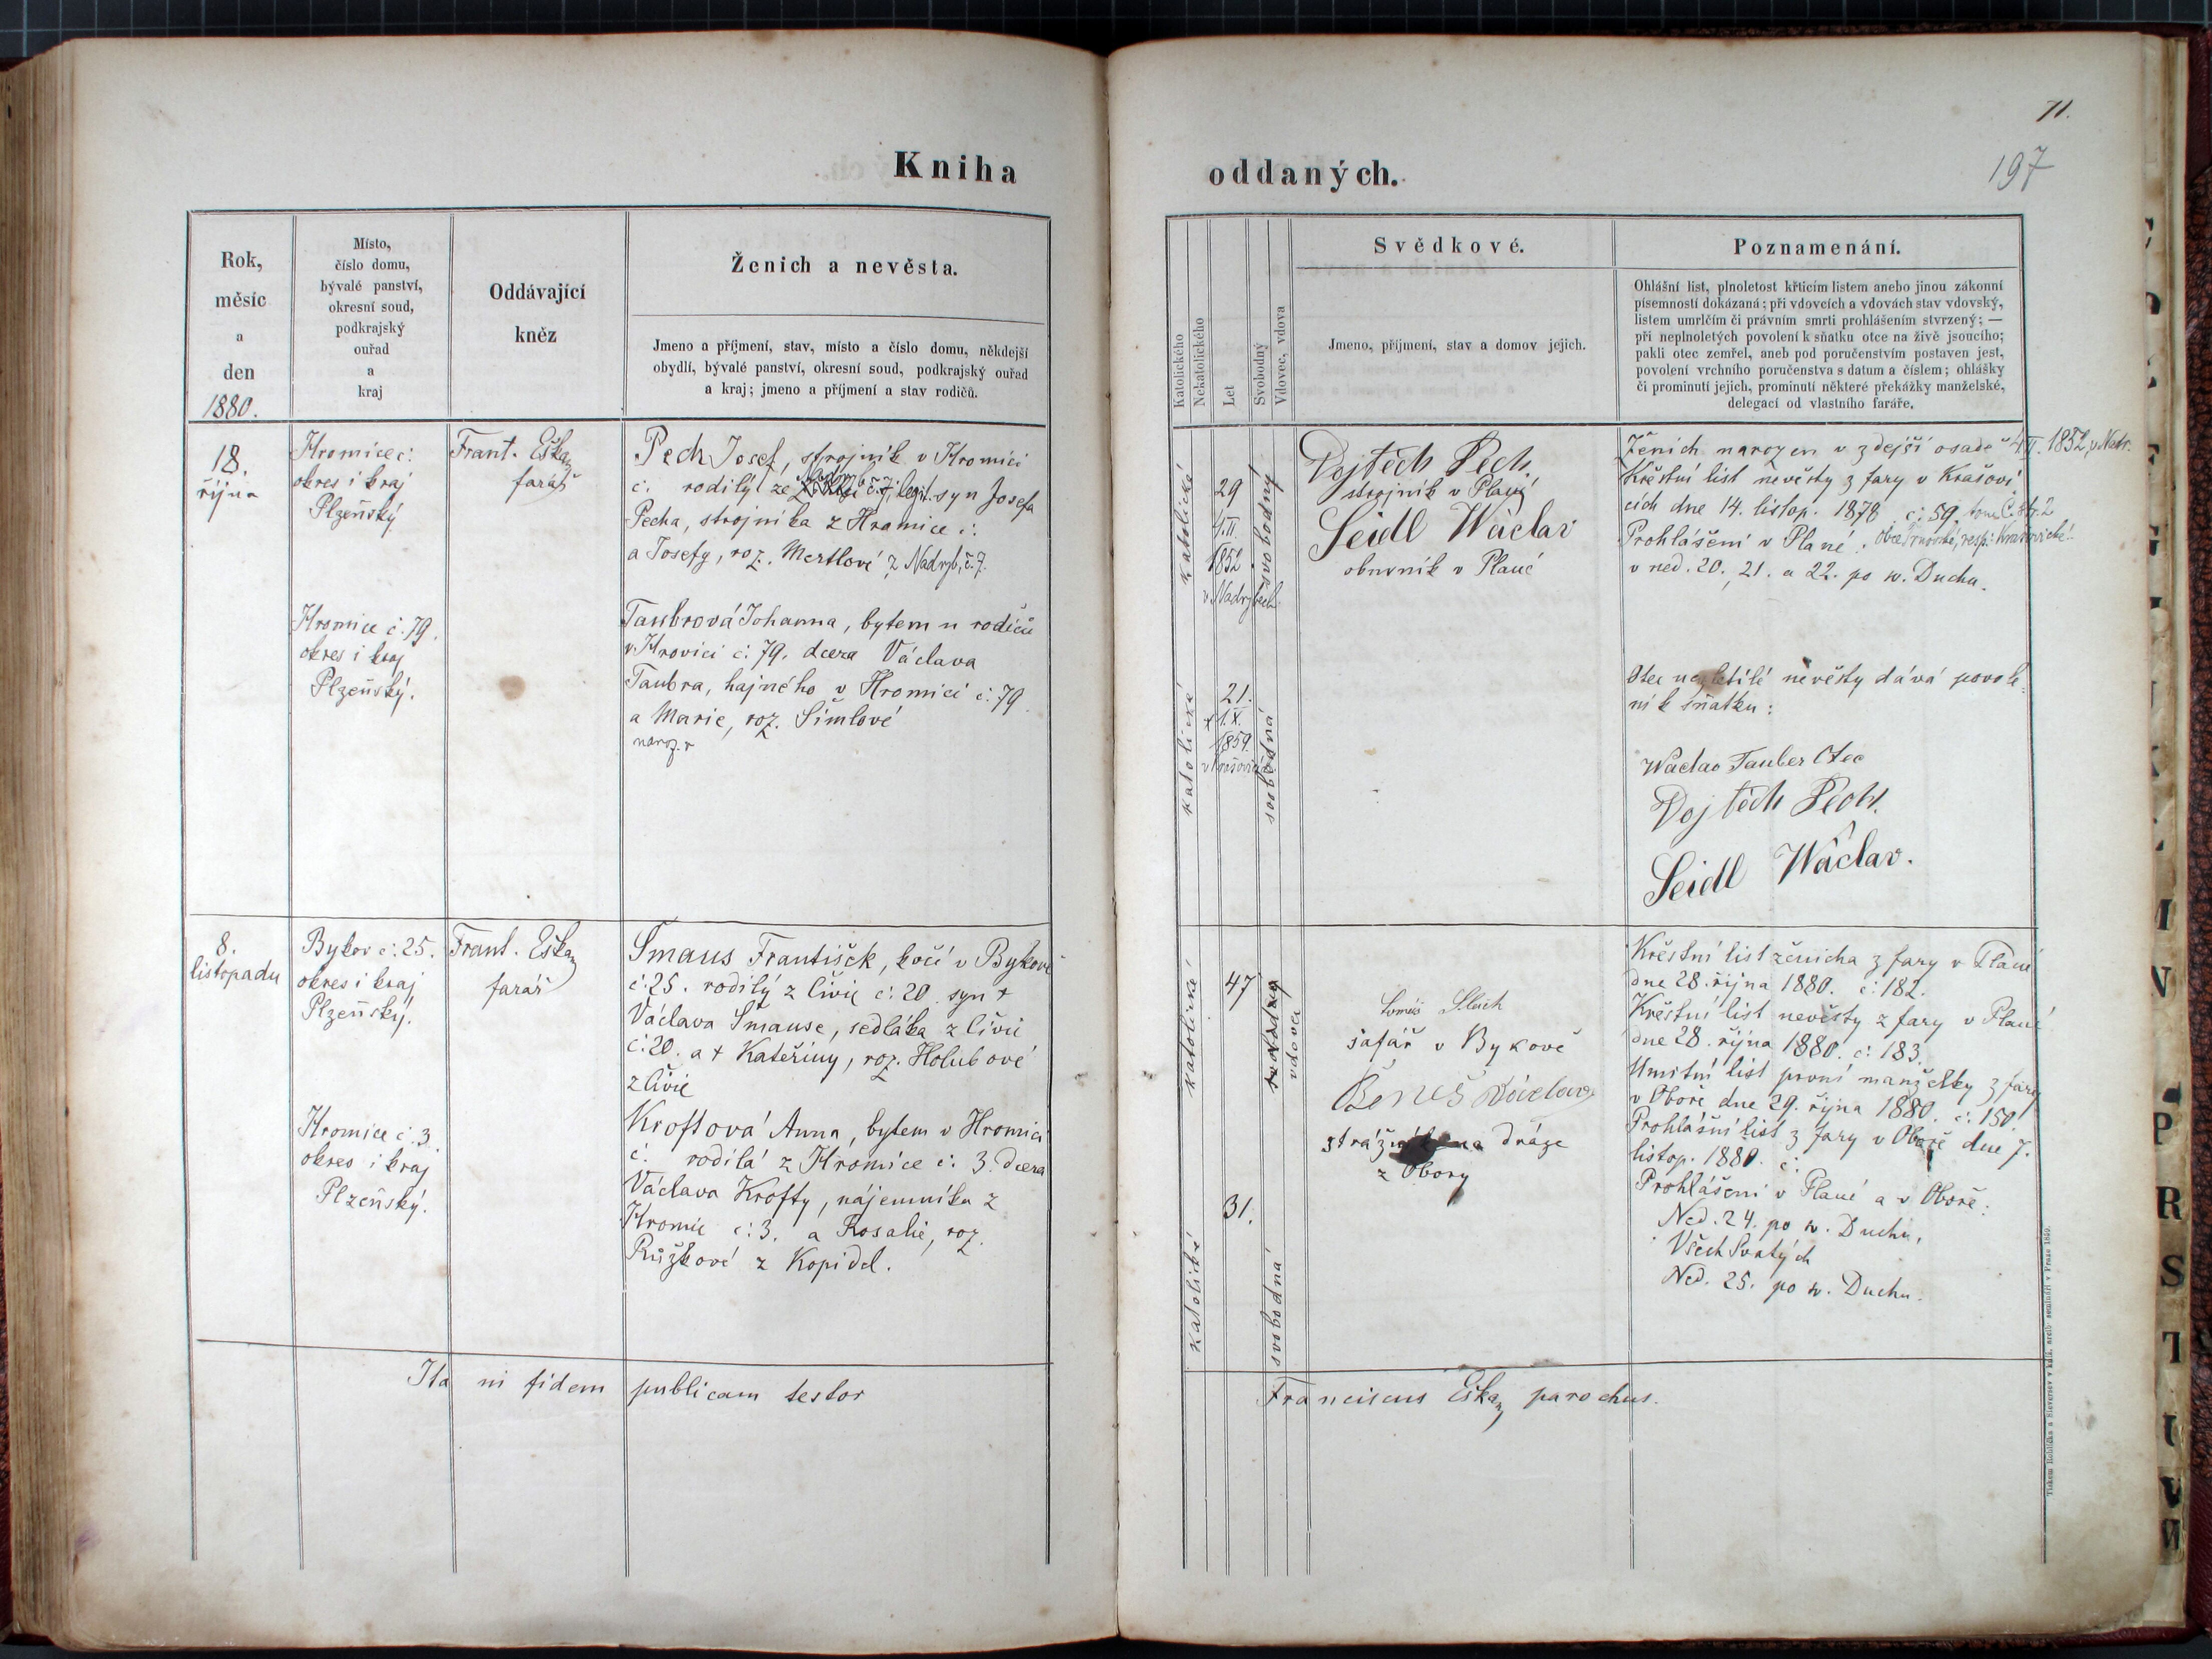 71.
197
Kniha
oddaných.
Rok,
měsíc
a
den
1880.
Místo,
číslo domu,
bývalé panství,
okresní soud,
podkrajský
ouřad
a
kraj
Oddávající
kněz
Ženich a nevěsta.
Jmeno a příjmení, stav, místo a číslo domu, někdejší
obydlí, bývalé panství, okresní soud, podkrajský ouřad
a kraj; jmeno a příjmení a stav rodičů.
18.
října
Hromice č:
okres i kraj
Plzeňský
Frant. Eška
farář
Pech Josef, strojník v Hromici
č. rodilý ze Nadryb č. 7, legit. syn Josefa
Pecha, strojníka z Hromice č:
a Josefy, roz. Mertlové z Nadryb, č. 7.
Hromice č. 79.
okres i kraj
Plzeňský.
Taubrová Johanna, bytem u rodičů
v Hrovici č. 79. dcera Václava
Taubra, hajného v Hromici č. 79
a Marie, roz. Šimlové
naroz. v
8.
listopadu
Bykov č. 25.
okres i kraj
Plzeňský.
Frant. Eška
farář
Smaus František, kočí v Bykově
č. 25. rodilý z Čivic č: 20. syn +
Václava Smause, sedláka z Čivic
č: 20. a + Kateřiny, roz. Holubové
z Čivic
Hromice č. 3
okres i kraj
Plzeňský.
Kroftová Anna, bytem v Hromici
č. rodilá z Hromice č. 3. dcera
Václava Krofty, nájemníka z
Hromic č: 3. a Rosalie, roz.
Růžkové z Kopidel.
Ita in fidem publicam testor
Katolického
Nekatolického
Let
Svobodný
Vdovec, vdova
Svědkové.
Jmeno, příjmení, stav a domov jejich.
Poznamenání.
Ohlášní list, plnoletost křticím listem anebo jinou zákonní
písemností dokázaná; při vdovcích a vdovách stav vdovský,
listem umrlčím či právním smrti prohlášením stvrzený; —
při neplnoletých povolení k sňatku otce na živě jsoucího;
pakli otec zemřel, aneb pod poručenstvím postaven jest,
povolení vrchního poručenstva s datum a číslem; ohlášky
či prominutí jejich, prominutí některé překážky manželské,
delegací od vlastního faráře.
katolické
29
4.II.
1852
v Nadrybech.
svobodný
Vojtěch Pech.
strojník v Plané
Seidl Wáclav
obuvník v Plané
Ženich narozen v zdejší osadě 4/II. 1852, v Nadr.
Křestní list nevěsty z fary v Krašovi
cích dne 14. listop. 1878. č: 59.
Prohlášení v Plané.
v ned. 20. 21. a 22. po sv. Duchu.
katolické
21.
* 1.X.
1859.
v Krašovicích
svobodná
Otec nezletilé nevěsty dává povole-
ní k sňatku:
Wáclav Tauber Otec
Vojtěch Pech.
Seidl Wáclav.
katolické
47
vdovec
Tomáš
šafář v Bykově
Beneš Václav
strážník na dráze
z Obory
Křestní list ženicha z fary v Plané
dne 28. října 1880. č: 182.
Křestní list nevěsty z fary v Plané
dne 28. října 1880. č: 183.
Umrtní list první manželky z fary
v Oboře dne 29. října 1880. č: 150.
Prohlášní list z fary v Oboře dne 7.
listop. 1880. č:
Prohlášení v Plané a v Oboře:
Ned. 24. po sv. Duchu,
Všech Svatých
Ned. 25. po sv. Duchu.
katolické
31.
svobodná
Franciscus Eška, parochus.